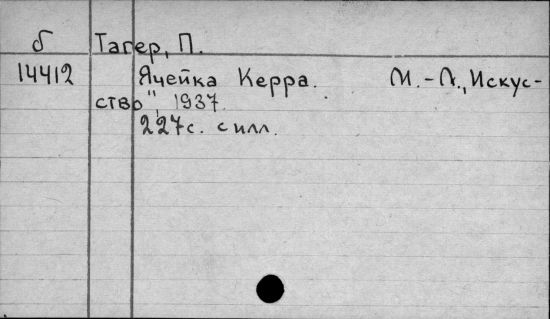 б Тагер, П.
14412 Ячейка Керра. М.-Л., Искус-
ство", 1937.
227с. с илл.